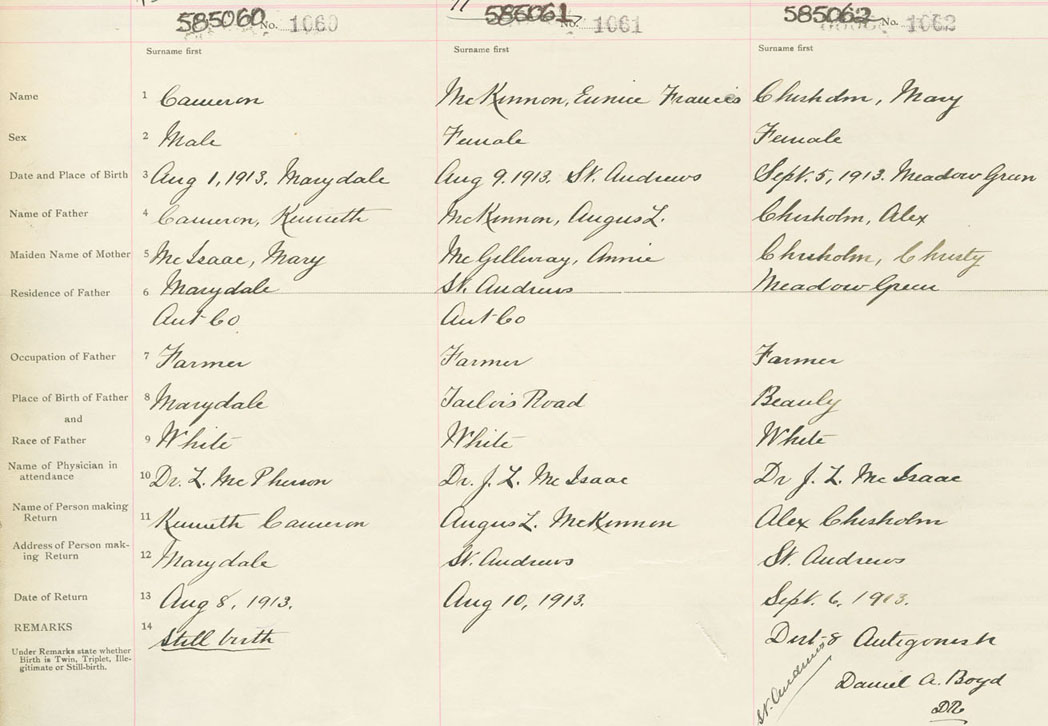 585060 No. 1060 585061 No. 1061 585062 No. 1062
Surname first Surname first Surname first
Name 1 Cameron McKinnon, Eunice Francis Chisholm, Mary
Sex 2 Male Female Female
Date and Place of Birth 3 Aug 1, 1913. Marydale Aug 9. 1913. St. Andrews Sept. 5, 1913. Meadow Green
Name of Father 4 Cameron, Kenneth McKinnon, Angus L. Chisholm, Alex
Maiden Name of Mother 5 McIsaac, Mary McGillivray, Annie Chisholm, Christy
Residence of Father 6 Marydale St. Andrews Meadow Green
Ant Co Ant Co
Occupation of Father 7 Farmer Farmer Farmer
Place of Birth of Father 8 Marydale Road Beauly
and
Race of Father 9 White White White
Name of Physician in
attendance 10 Dr. L. McPherson Dr. J. L. McIsaac Dr J. L. McIsaac
Name of Person making
Return 11 Kenneth Cameron Angus L. McKinnon Alex Chisholm
Address of Person mak-
ing Return 12 Marydale St. Andrews St. Andrews
Date of Return 13 Aug 8, 1913. Aug 10, 1913. Sept. 6, 1913.
REMARKS 14 Still birth Dist-8 Antigonish
Under Remarks state whether
Birth is Twin, Triplet, Ille-
gitimate or Still-birth.
St. Andrews
Daniel A. Boyd
DR